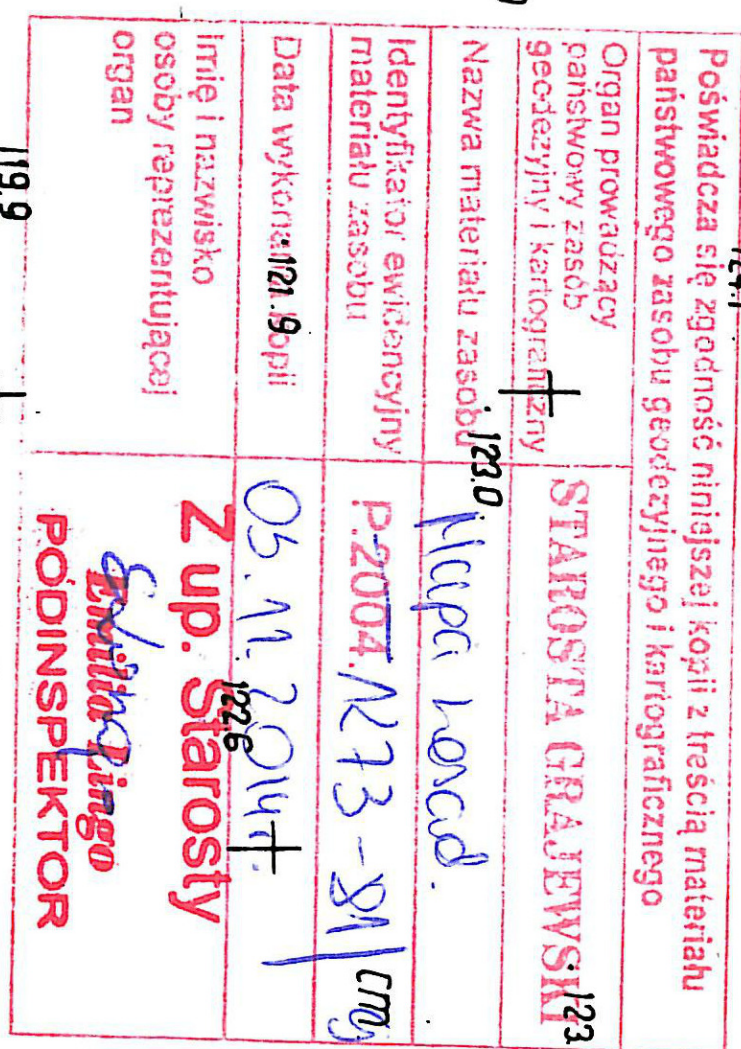 Poświadcza się zgodność niniejszej kopii z treścią materiału
państwowego zasobu geodezyjnego i kartograficznego
Organ prowadzący
państwowy zasób
geodezyjny i kartograficzny
STAROSTA GRAJEWSKI
123
Nazwa materiału zasobu
123.0
Mapa
Identyfikator ewidencyjny
materiału zasobu
P.2004.
Data wykonania kopii
121.9
05.11.2014r.
122.6
Imię i nazwisko
osoby reprezentującej
organ
Z up. Starosty
Emilia Lingo
PODINSPEKTOR
119.9